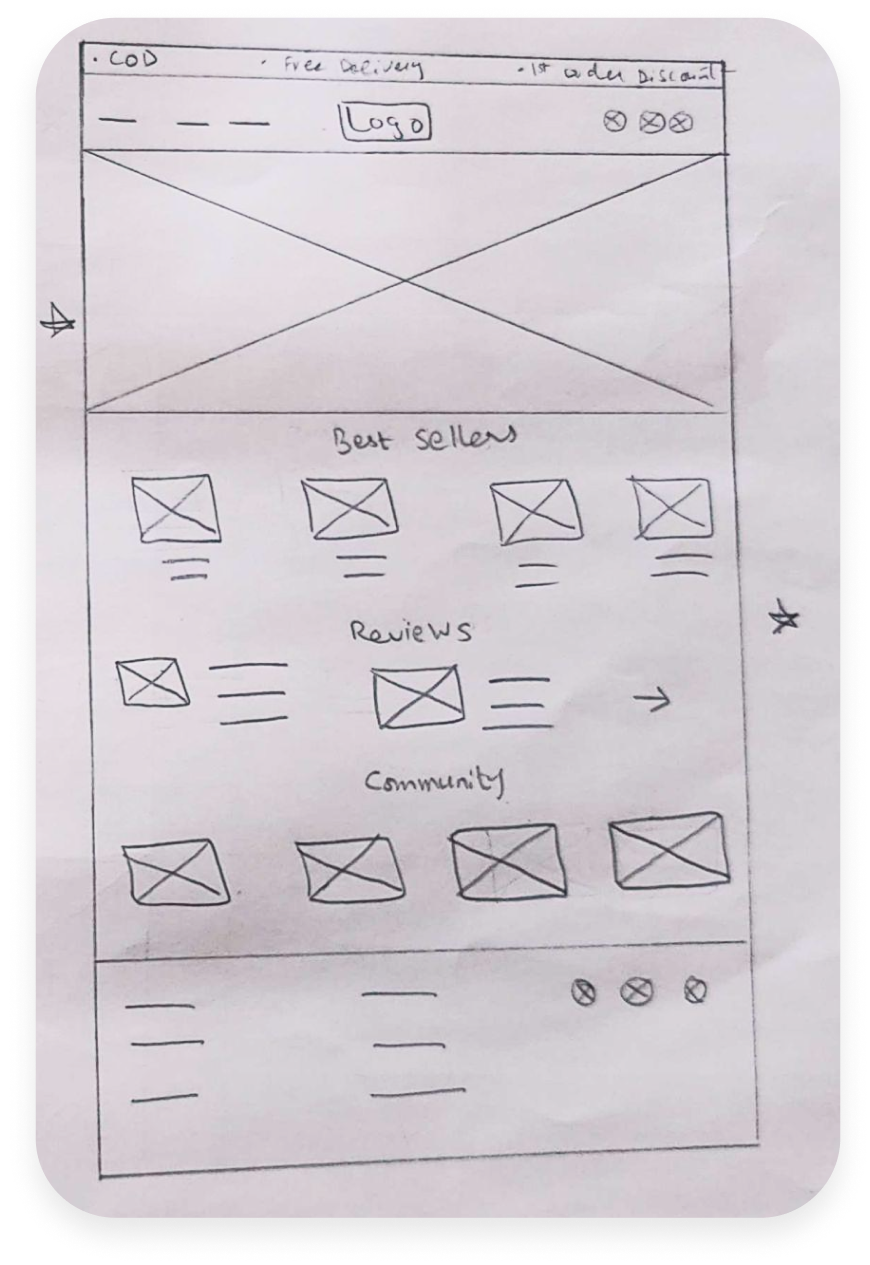 · COD · Free Delivery · 1st order Discount
Logo
Best Sellers
Reviews
Community